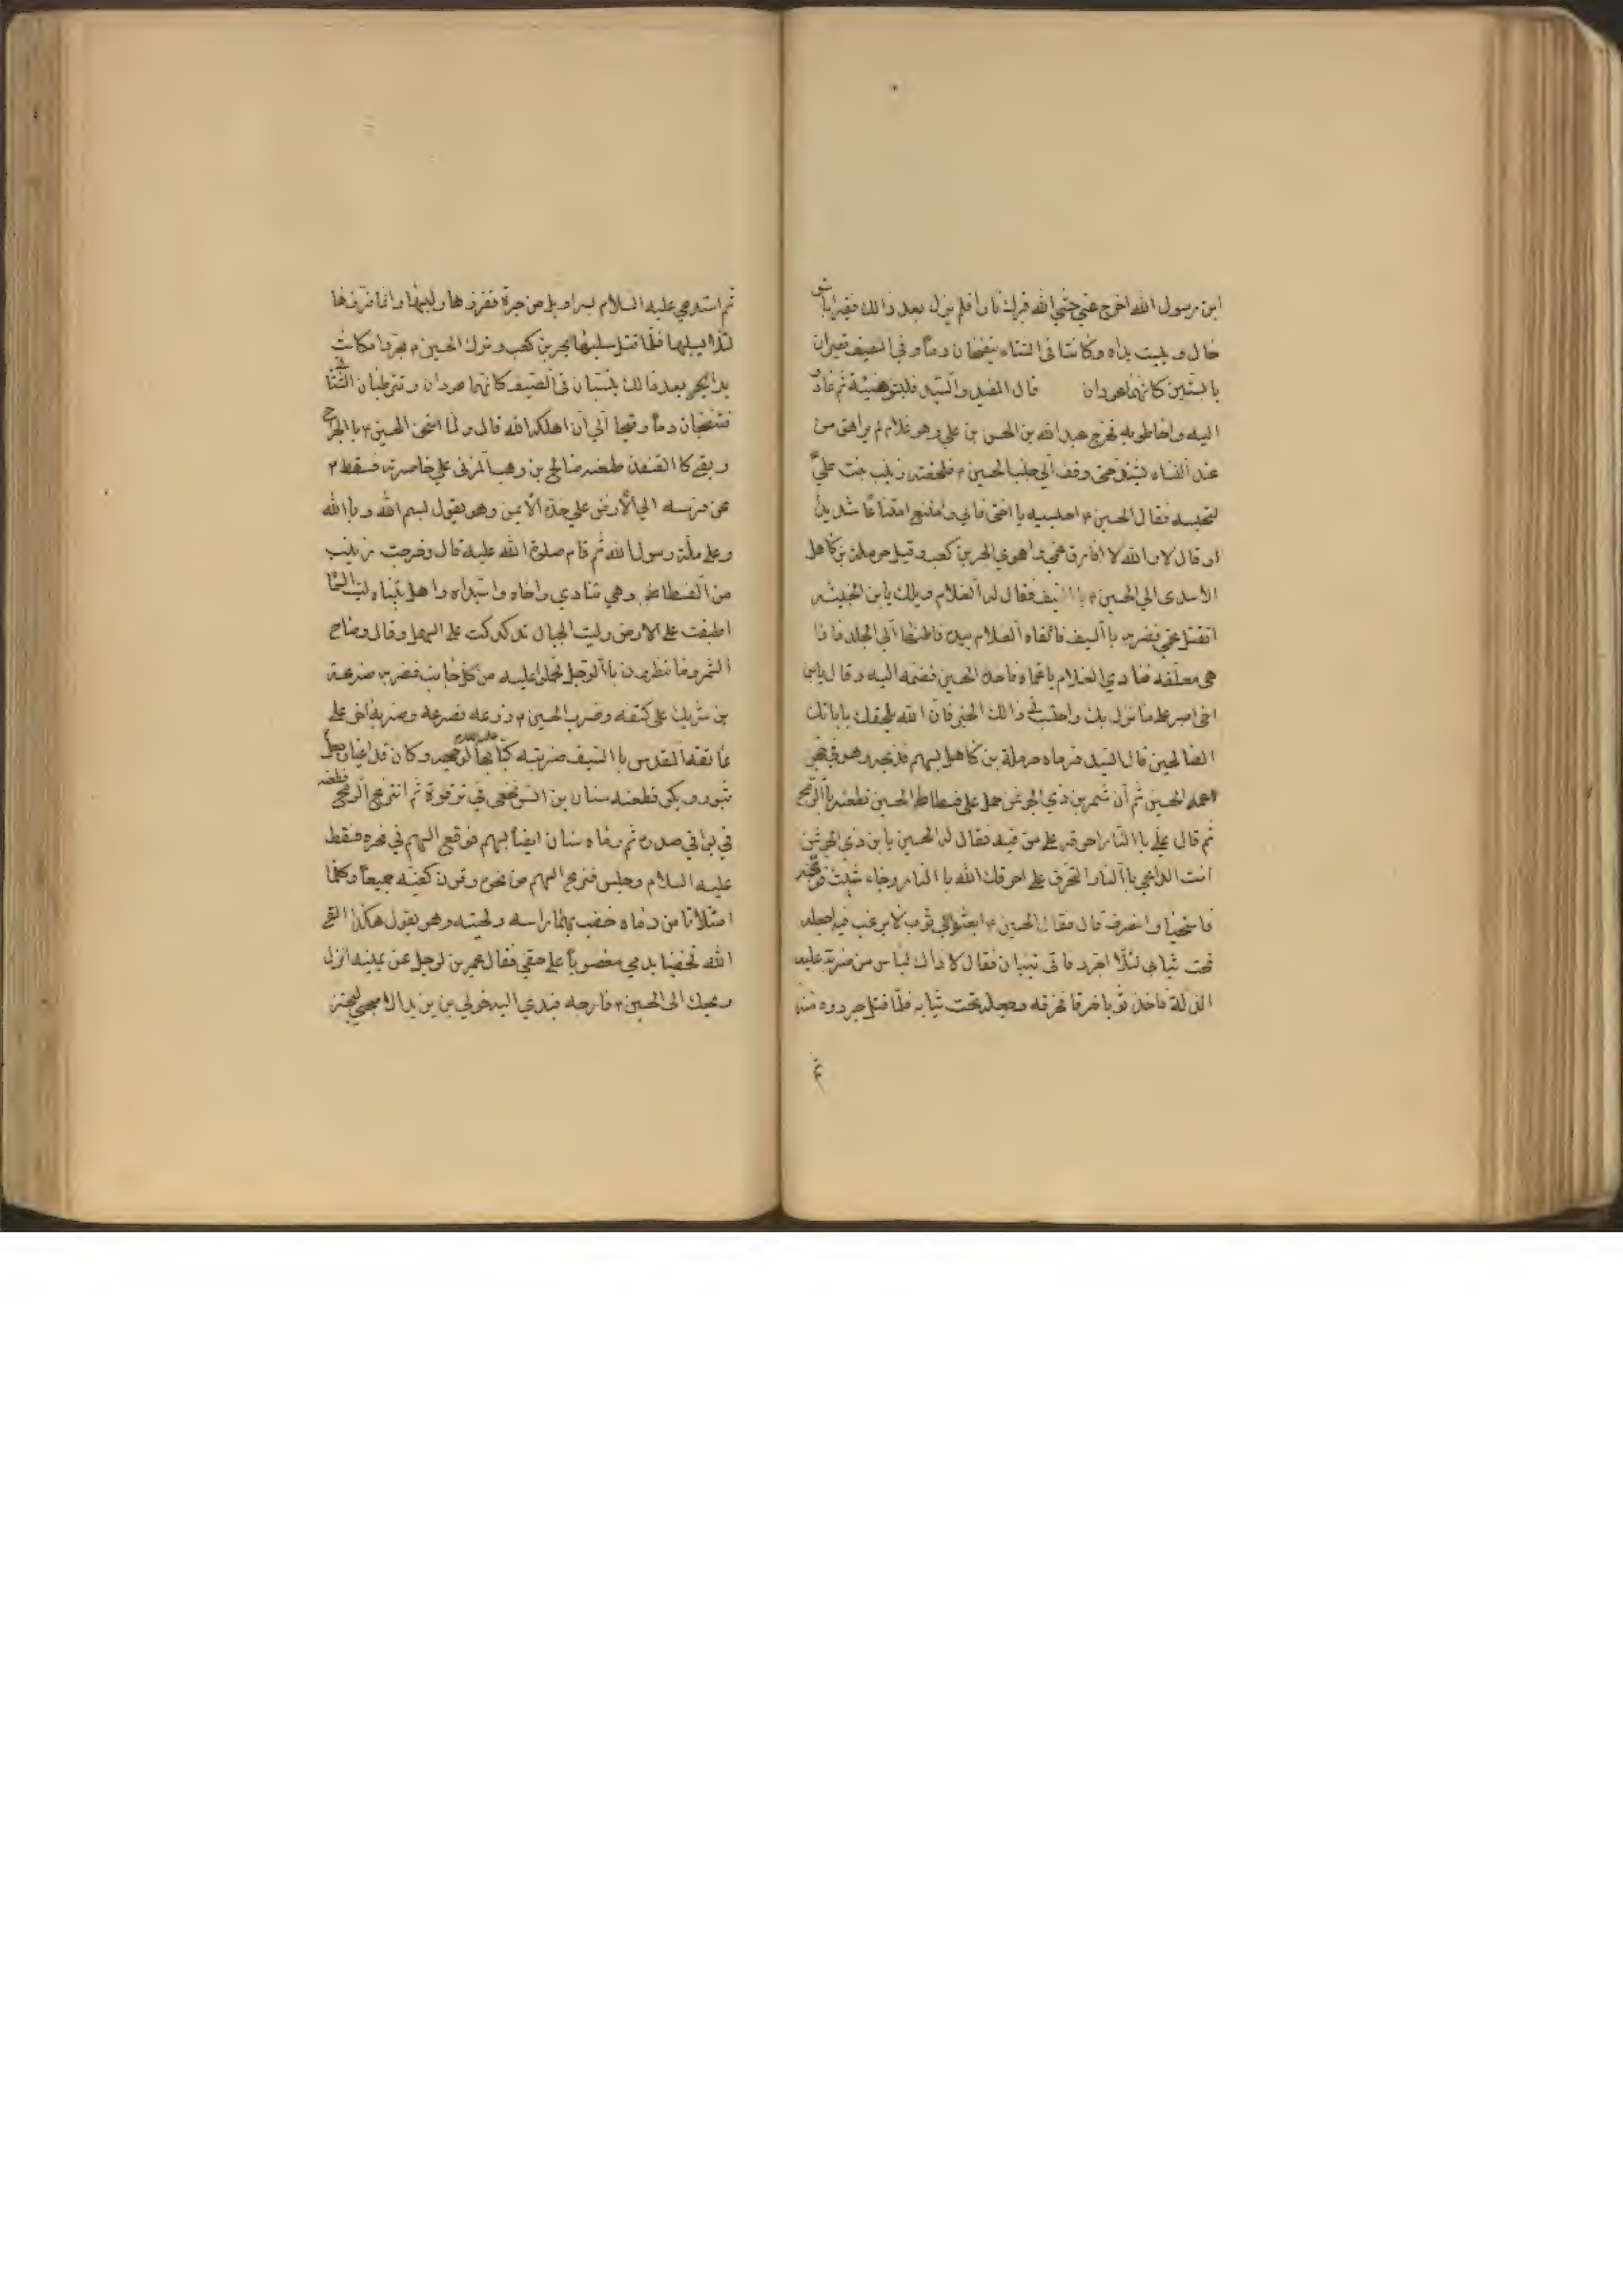 ابن رسول الله اخرج عني حشي الله قبرك نارا فلم يزل بعد ذالك فقيرا باسو
حال ويبست يداه وكانتا في الشتاء ينضحان دما وفي الصيف تصيران
يابستين كانهما عودان قال المفيد والسيد فلبثو هنيئة ثم عادو
اليه واحاطو به فخرج عبد الله بن الحسن بن علي وهو غلام لم يراهق من
عند النساء يشتد حتى وقف الي جنب الحسين ء فلحقته زينب بنت علي
لتحبسه فقال الحسين ء احبسيه يا اختي فابي وامتنع امتناعا شديدا
او قال لا والله لا افارق عمي واهوي ابحر بن كعب وقيل حرملة بن كاهل
الاسدي الي الحسين ء باالسيف فقال له الغلام ويلك يابن الخبيثه
اتقتل عمي فضربه باالسيف فاتقاه الغلام بيده فاطنها الي الجلد فاذا
هي معلقه فنادي الغلام يا عماه فاخذه الحسين فضمه اليه وقال يابن
اخي اصبر علي ما نزل بك واحتسب في ذالك الخير فان الله يلحقك بابائك
الصالحين قال السيد فرماه حرملة بن كاهل بسهم فذبحه وهو في حجر
عمه الحسين ثم ان شمر بن ذي الجوشن حمل علي فسطاط الحسين فطعنه باالرمح
ثم قال علي باالنار احرقه علي من فيه فقال له الحسين يابن ذي الجوشن
انت الداعي باالنار لتحرق علي احرقك الله باالنار وجاء شبث فوبخه
فاستحيا وانصرف قال فقال الحسين ء ابعثو الي ثوب لا يرغب فيه اجعله
تحت ثيابي لئلا اجرد فاتي بتبان فقال لا ذاك لباس من ضربة عليه
الذلة فاخذ ثوبا خرقا فخرقه وجعله تحت ثيابه فلما قتل جردوه منه
ثم
ثم استدعي عليه السلام بسراويل من حبرة ففزرها ولبسها وانما فزرها
لئلا يسلبها فلما قتل سلبها ابحر بن كعب وترك الحسين ء مجردا فكانت
يدا ابحر بعد ذالك ييبسان في الصيف كانهما عودان وتترطبان في الشتا
فتنضحان دما وقيحا الي ان اهلكه الله قال ولما اثخن الحسين ء باالجراح
وبقي كاالقنفذ طعنه صالح بن وهب المزني علي خاصرته فسقط ء
عن فرسه الي الارض علي خده الايمن وهو يقول بسم الله وباالله
وعلي ملة رسول الله ثم قام صلوة الله عليه قال وخرجت زينب
من الفسطاط وهي تنادي واخاه واسيداه واهل بيتاه ليت السما
اطبقت علي الارض وليت الجبال تدكدكت علي السهل وقال وصاح
الشمر وما تنظرون باالرجل فحملو عليه من كل جانب فضربه ضرعة
بن شريك علي كتفه وضرب الحسين ء زرعه فصرعه وضربه اخر علي
عاتقه المقدس باالسيف ضربته كبا بها عليه السلام لوجهه وكان قد اعيا وجعل
ينوء ويكبو فطعنه سنان بن انس نخعي في ترقوة ثم انتزع الرمح فطعنه
في بواني صدره ثم رماه سنان ايضا بسهم فوقع السهم في نحره فسقط
عليه السلام وجلس فنزع السهم من نحره وقرن كفيه جميعا وكلما
امتلاتا من دماه خضب بهما راسه ولحيته وهو يقول هكذا القي
الله مخضبا بدمي مغصوبا علي حقي فقال عمر بن لرجل عن يمينه انزل
ويحك الي الحسين ء فارحه فبدي اليه خولي بن يزيد الاصبحي ليجتز